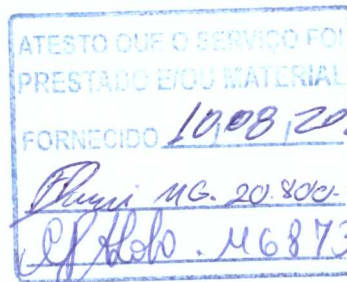 ATESTO QUE O SERVIÇO FOI
PRESTADO E/OU MATERIAL
FORNECIDO 10,08,20
MG. 20.800-
M6873